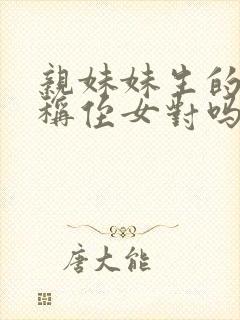 親妹妹生的
稱侄女對吗
唐大能